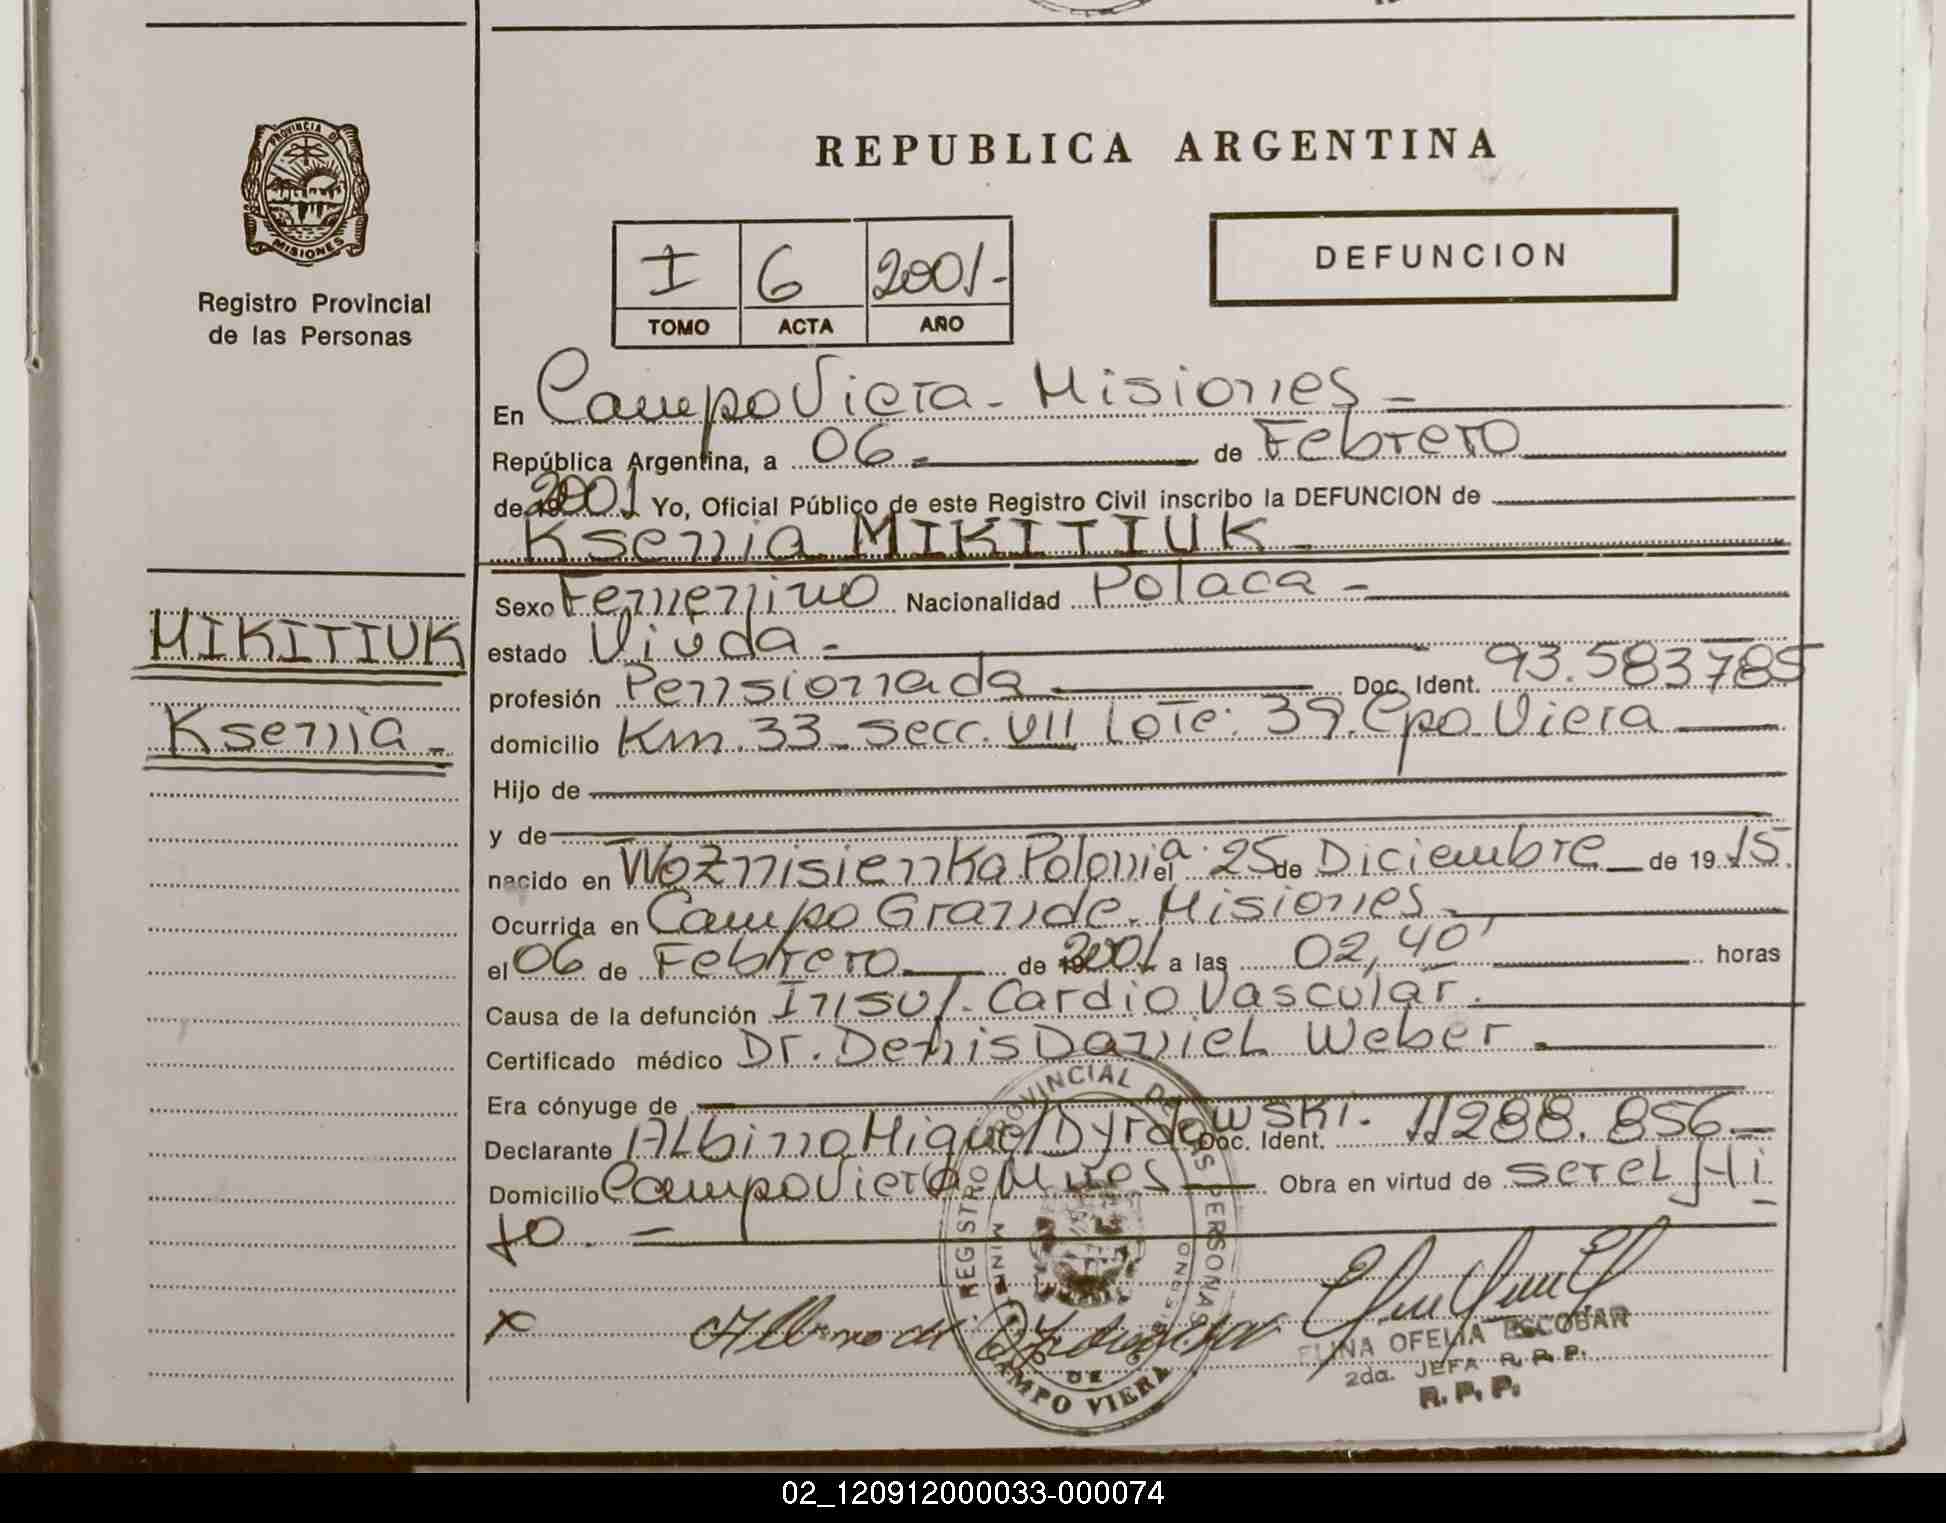 PROVINCIA DE
MISIONES
Registro Provincial
de las Personas
MIKITIUK
Ksenia -
REPUBLICA ARGENTINA
I 6 2001-
TOMO ACTA AÑO
DEFUNCION
En Campo Viera - Misiones -
República Argentina, a 06 - de Febrero
de 2001 Yo, Oficial Público de este Registro Civil inscribo la DEFUNCION de
Ksenia MIKITIUK -
Sexo Femenino Nacionalidad Polaca -
estado Viuda -
profesión Pensionada Doc. Ident. 93.583785
domicilio Km. 33 - secc. VII Lote: 39. Cpo Viera
Hijo de
y de
nacido en Woznisienka Polonia el 25 de Diciembre de 19 15.
Ocurrida en Campo Grande - Misiones -
el 06 de Febrero de 2001 a las 02,40' horas
Causa de la defunción Insuf. Cardio Vascular.
Certificado médico Dr. Denis Daniel Weber
Era cónyuge de
Declarante Albino Miguel Dyrdowski. Doc. Ident. 11288.856-
Domicilio Campo Viera Mnes Obra en virtud de ser el Hi
jo. -
x Albino M
ELINA OFELIA ESCOBAR
2da. JEFA R. P. P.
R. P. P.
REGISTRO PROVINCIAL DE LAS PERSONAS
CAMPO VIERA
02_120912000033-000074